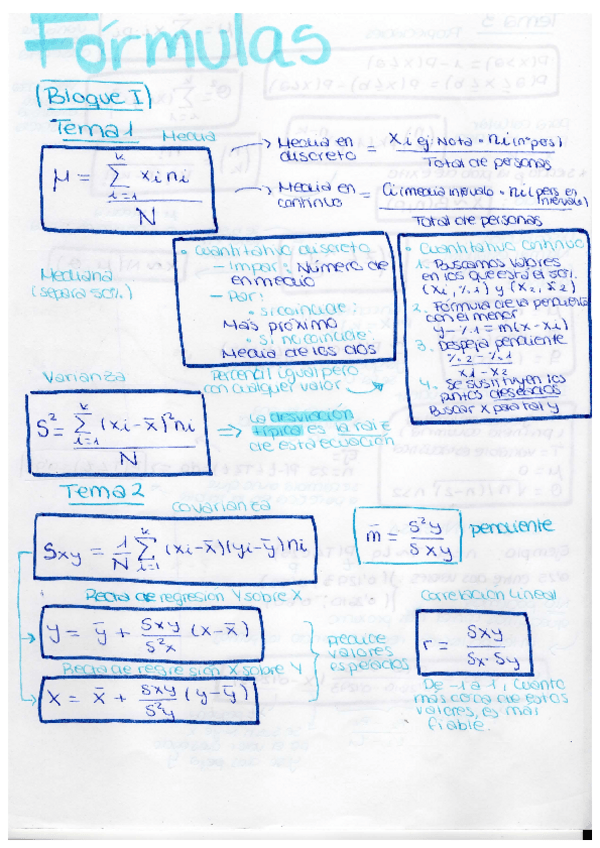 Fórmulas
(Bloque I)
Tema 1
Media
μ = Σ_{i=1}^{k} xi ni / N
→ Media en discreto = Xi ej: Nota · ni (nº pers) / Total de personas
→ Media en continuo = Ci (media intervalo · ni (pers en intervalo) / Total de personas
Mediana
(separa 50%)
• Cuantitativo discreto
– Impar: Número de
en medio
– Par:
• si coincide:
Más próximo
• si no coincide:
Media de los dos
• Cuantitativo continuo
1. Buscamos valores
en los que está el 50%.
(x1, %1) y (x2, %2)
2. Fórmula de la pendiente
con el menor
y - %1 = m(x - x1)
3. Despeja pendiente
%2 - %1 / x1 - x2
4. Se sustituyen los
puntos deseados
Buscar x para tal y
Percentil igual pero
con cualquier valor
Varianza
S² = Σ_{i=1}^{k} (xi - x̄)² ni / N
⇒ La desviación
típica es la raíz
de esta ecuación
Tema 2
Covarianza
Sxy = 1/N Σ_{i=1}^{k} (xi - x̄)(yi - ȳ) ni
m̄ = S²y / Sxy pendiente
Recta de regresión Y sobre X
y = ȳ + Sxy / S²x (x - x̄)
Recta de regresión X sobre Y
x = x̄ + Sxy / S²y (y - ȳ)
predice
valores
esperados
Correlación Lineal
r = Sxy / Sx · Sy
De -1 a 1, cuanto
más cerca de estos
valores, es más
fiable.